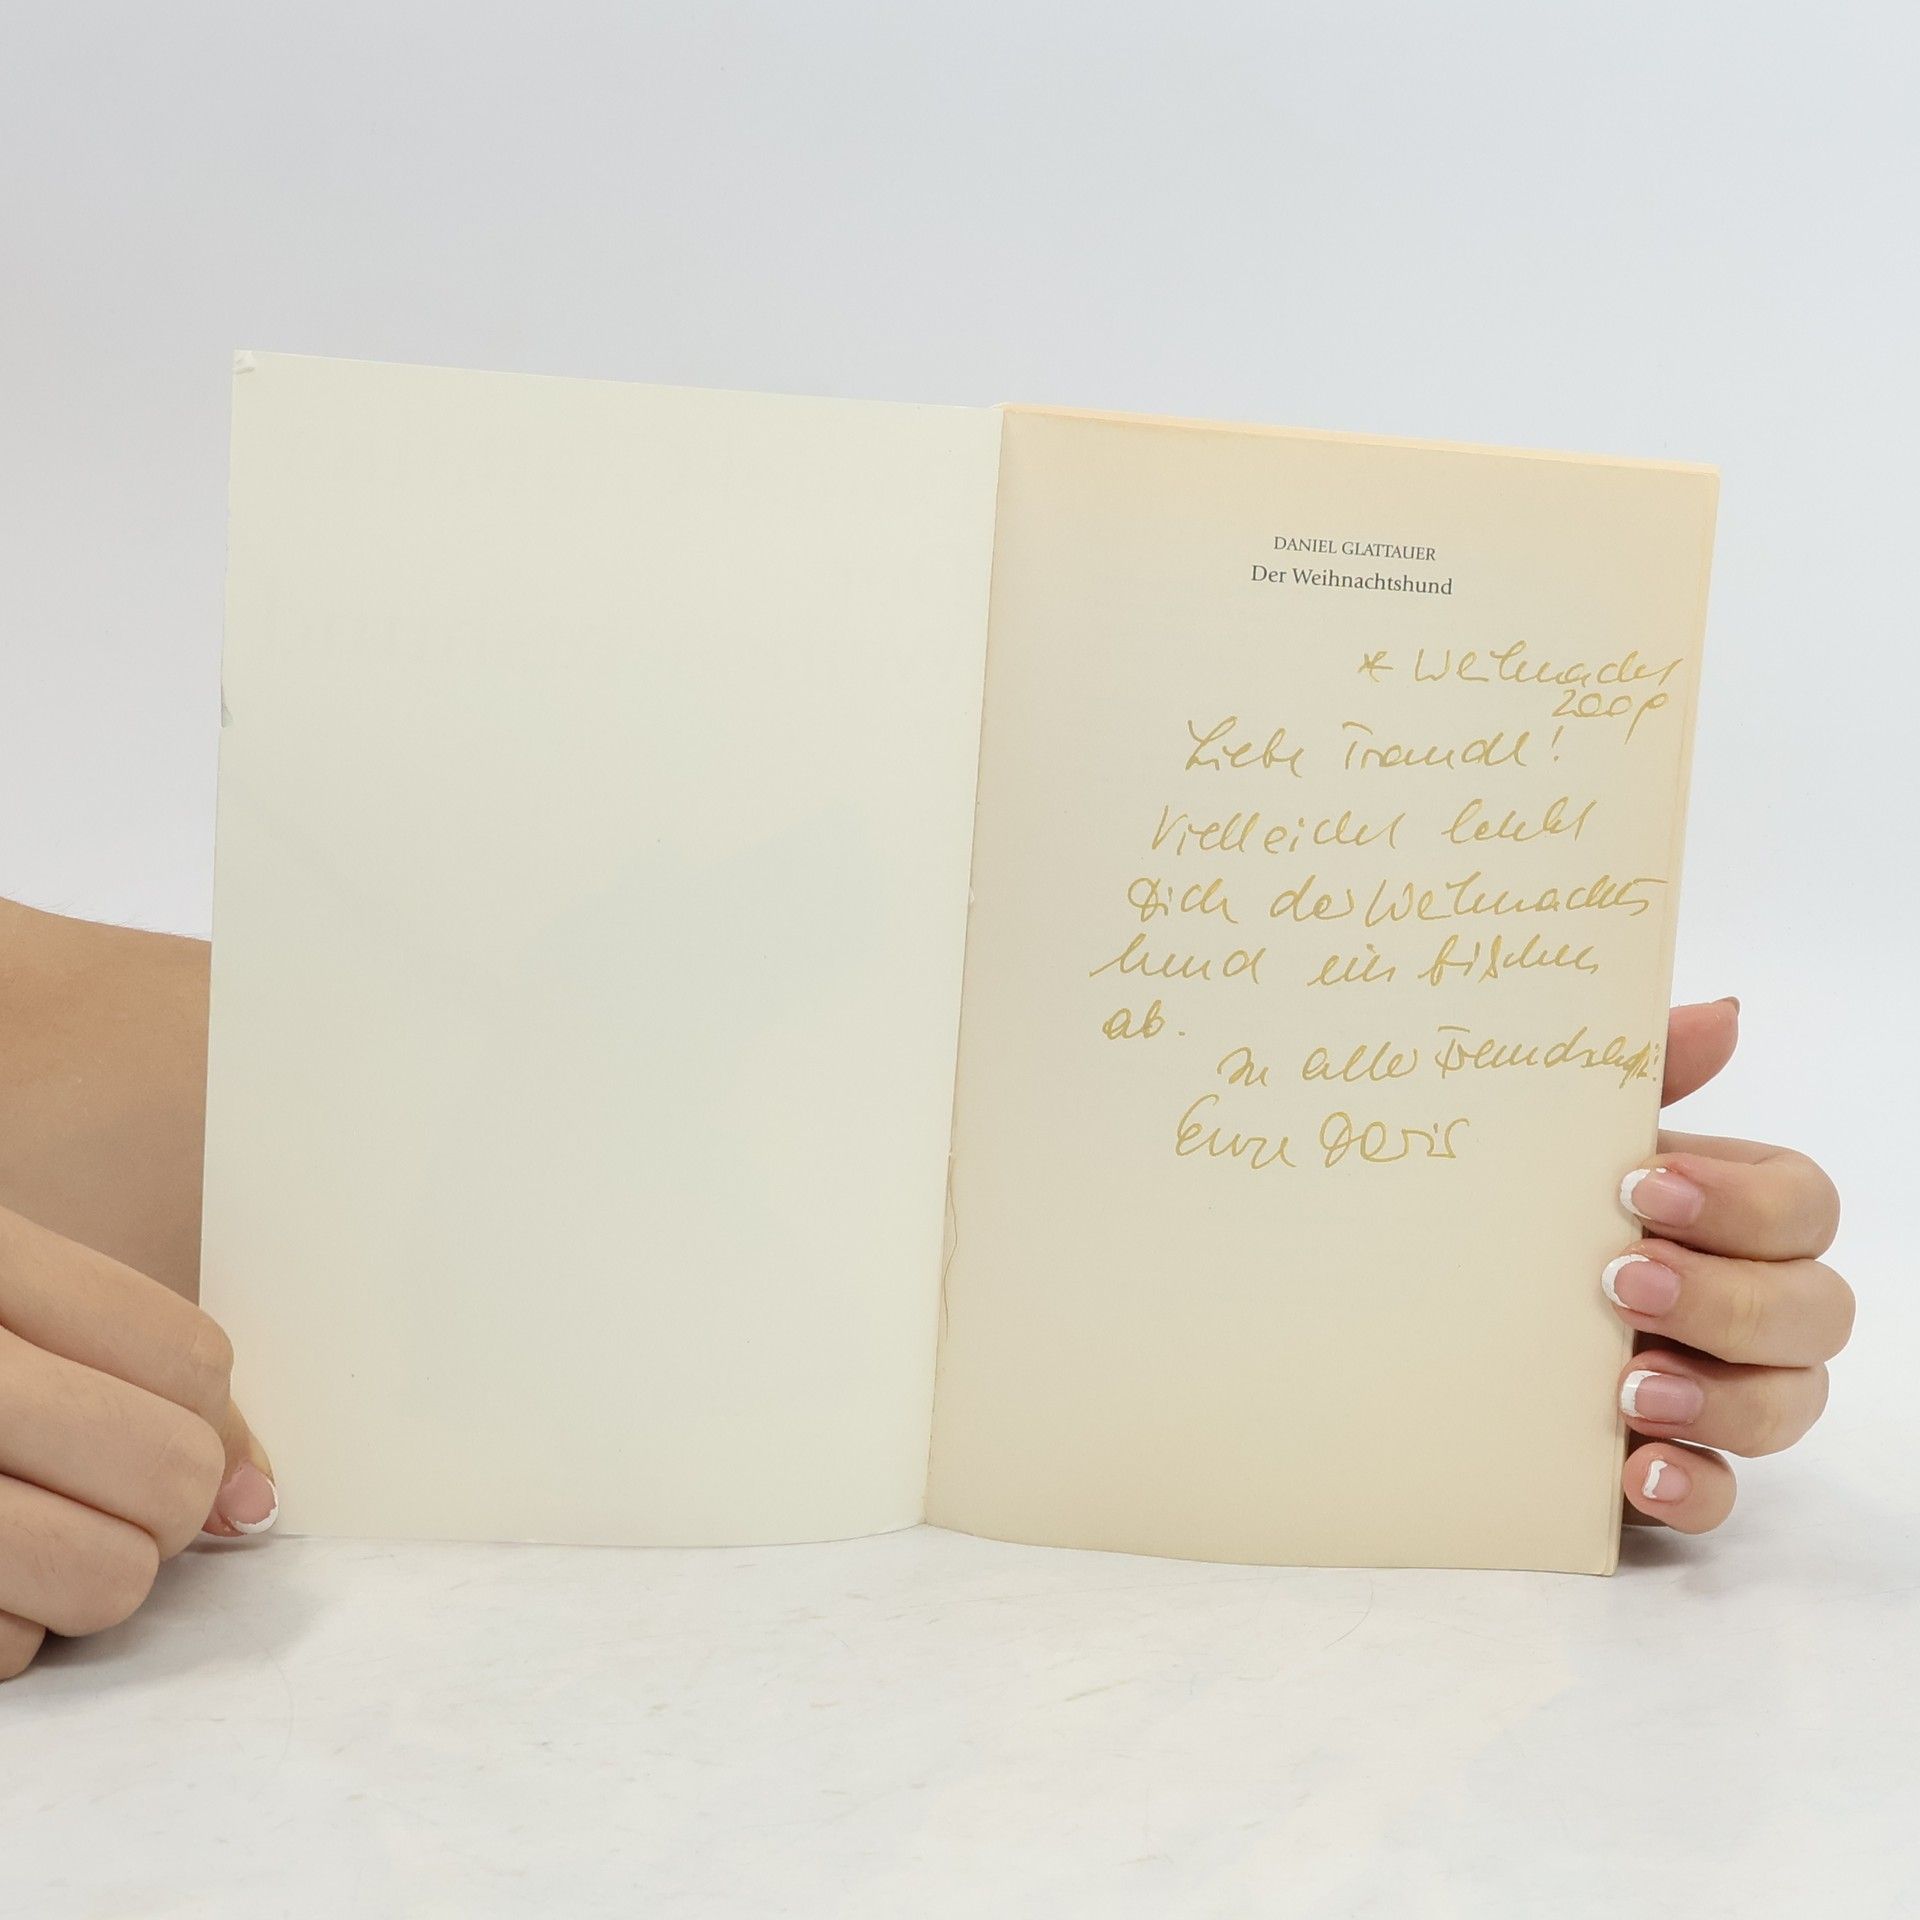 DANIEL GLATTAUER
Der Weihnachtshund
* Weihnacht
2009
Liebe Traudl!
Vielleicht lenkt
Dich der Weihnachts
hund ein bißchen
ab.
In aller Freundschaft!
Eure Doris